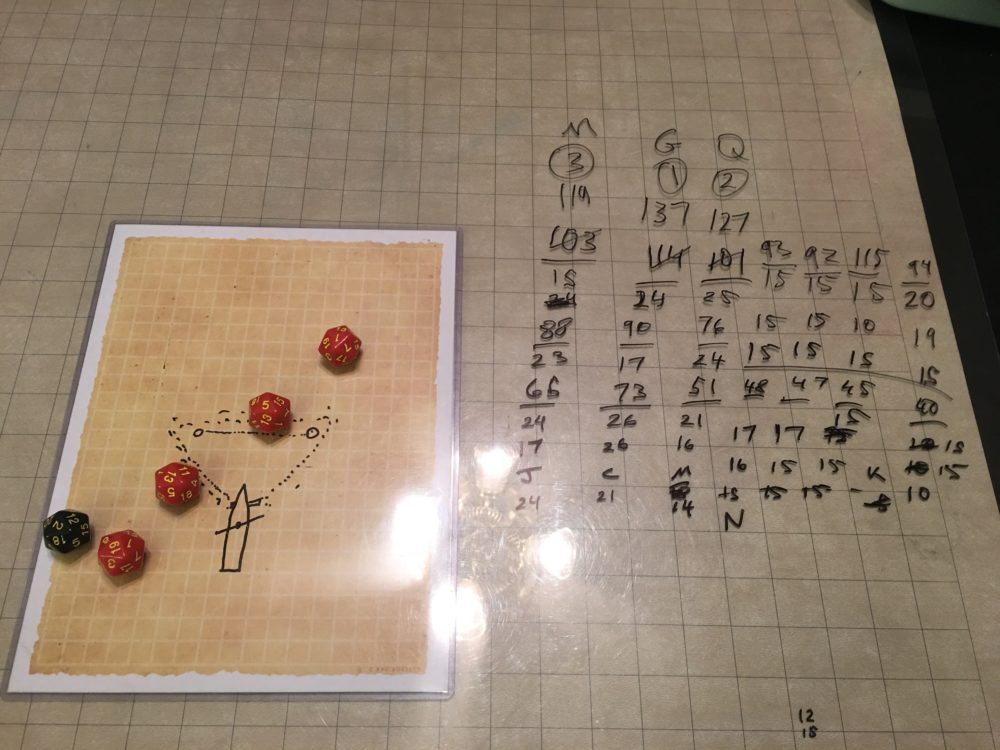 M G Q
3 1 2
119 137 127
103 114 101 93 92 115 94
15 24 25 15 15 15 20
88 90 76 15 15 10 19
23 17 24 15 15 15 15
65 73 51 48 47 45 40
24 26 21
17 26 16 17 17 15
J C M 16 15 15 K 15
24 21 14 +5 +5 +5 10
N
12
15